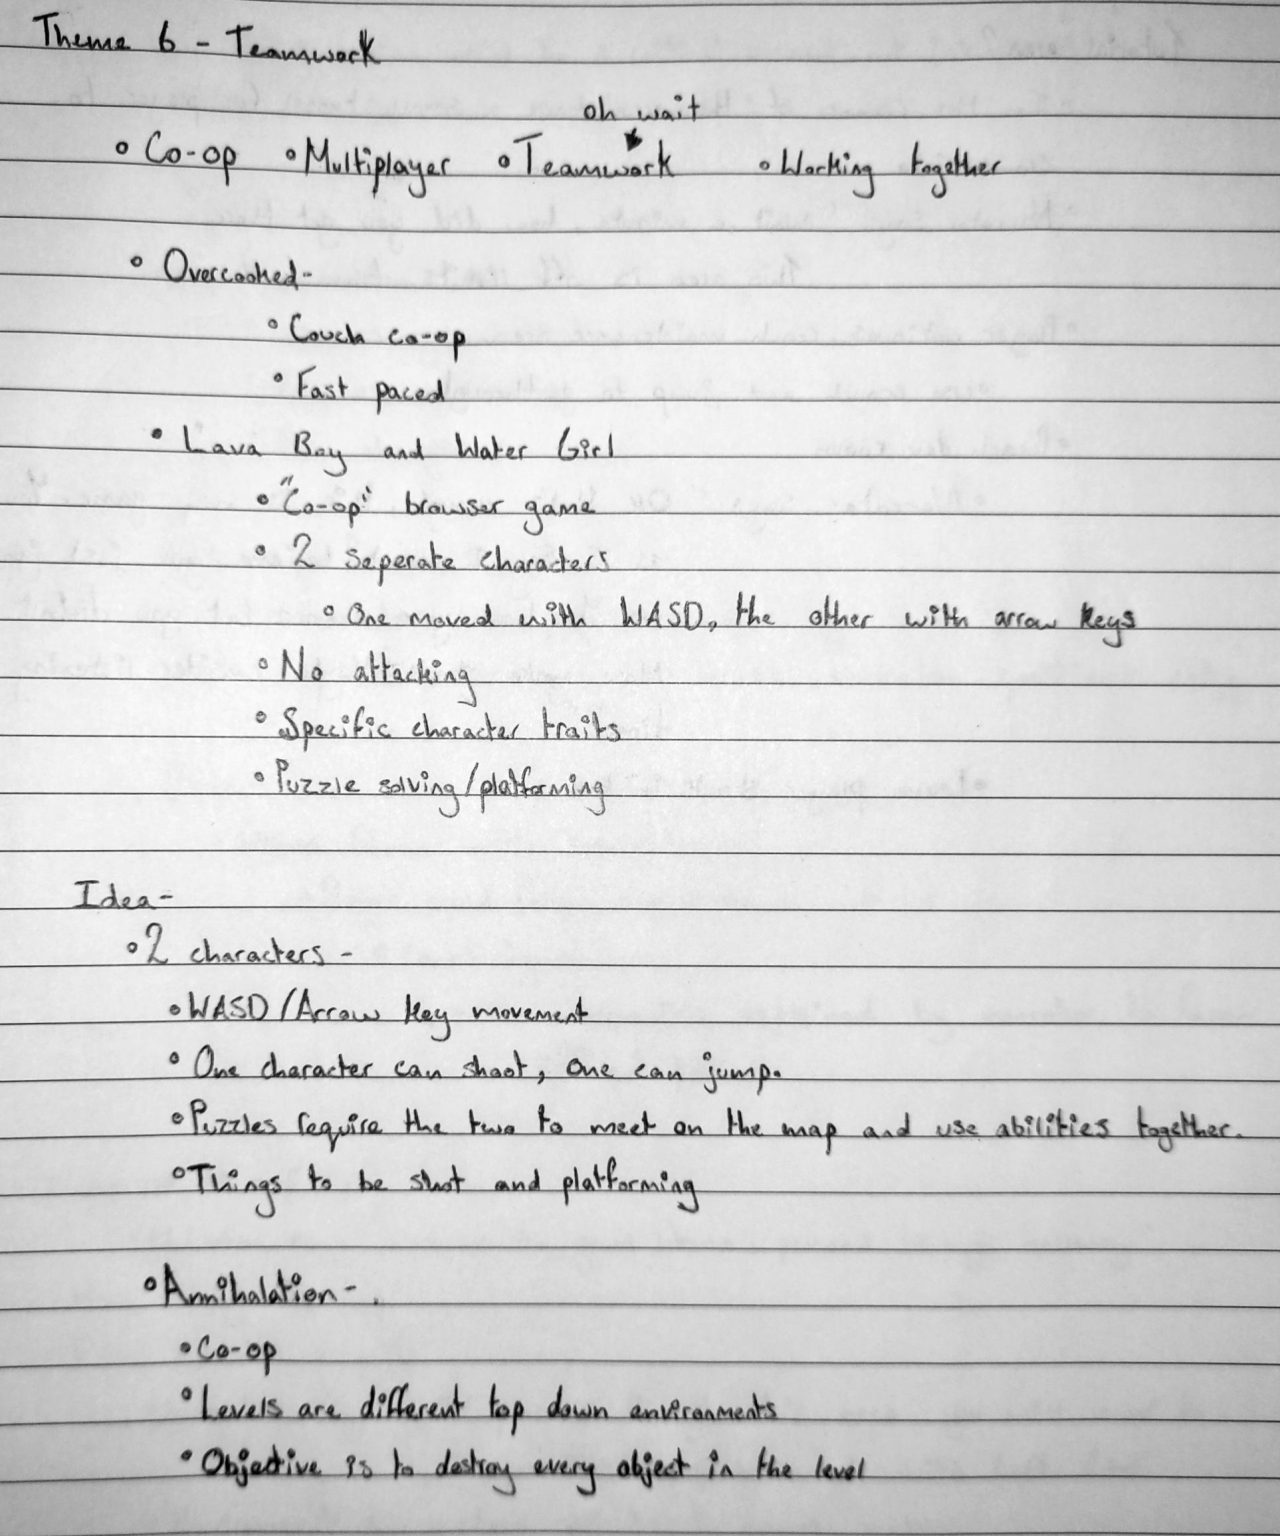 Theme 6 - Teamwork
oh wait
• Co-op • Multiplayer • Teamwork • Working together
• Overcooked-
• Couch co-op
• Fast paced
• Lava Boy and Water Girl
• "Co-op" browser game
• 2 seperate characters
• One moved with WASD, the other with arrow keys
• No attacking
• Specific character traits
• Puzzle solving/platforming
Idea-
• 2 characters -
• WASD/Arrow key movement
• One character can shoot, one can jump.
• Puzzles require the two to meet on the map and use abilities together.
• Things to be shot and platforming
• Annihalation-
• Co-op
• Levels are different top down environments
• Objective is to destroy every object in the level